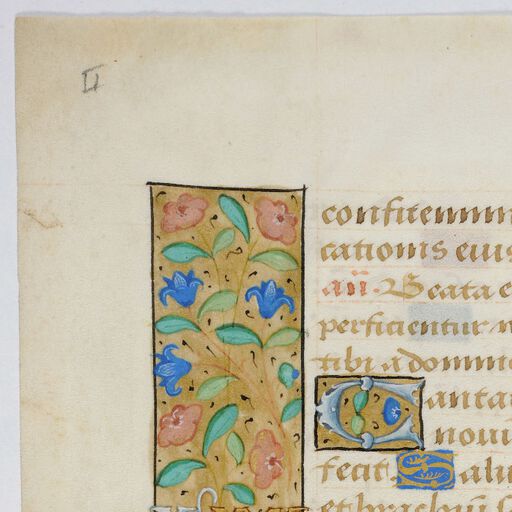 confitemini
cationis eius
añ. Beata e
perficientur
tibi a domino
Canta
novu
fecit. Salu
et brachiu